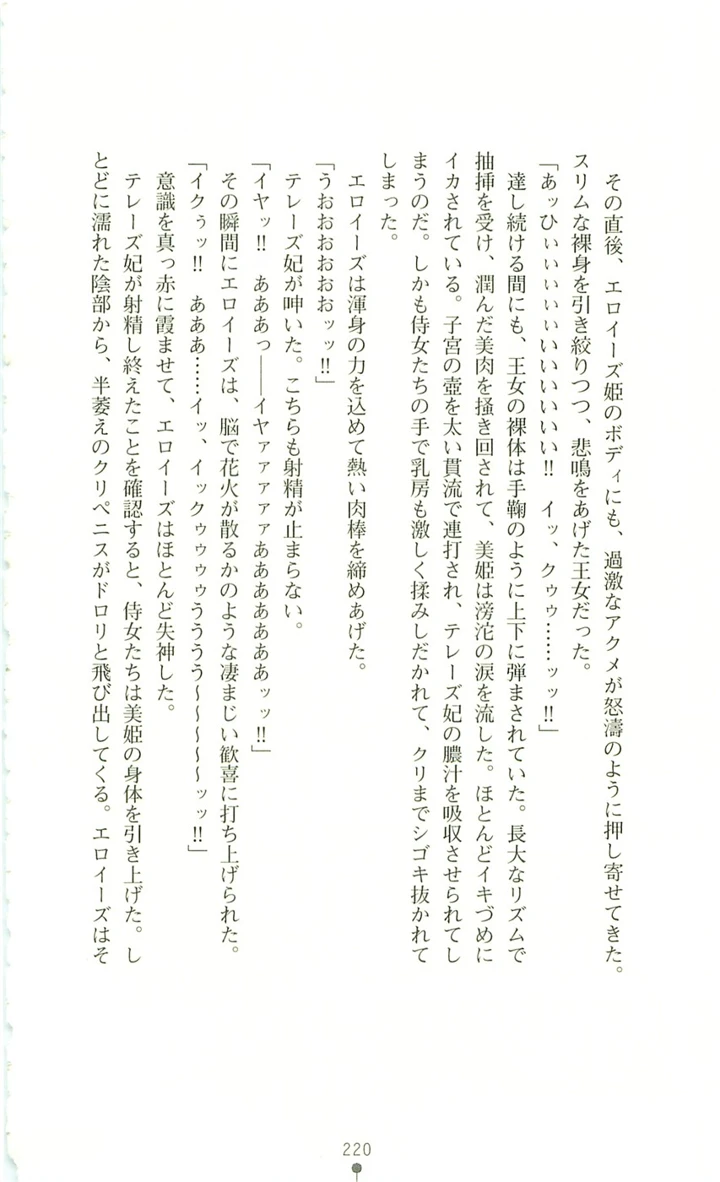 その直後、エロイーズ姫のボディにも、過激なアクメが怒濤のように押し寄せてきた。
スリムな裸身を引き絞りつつ、悲鳴をあげた王女だった。
「あッひぃぃぃぃぃいいいいいい!! イッ、クゥゥ……ッッ!!」
達し続ける間にも、王女の裸体は手鞠のように上下に弾まされていた。長大なリズムで
抽挿を受け、潤んだ美肉を掻き回されて、美姫は滂沱の涙を流した。ほとんどイキづめに
イカされている。子宮の壺を太い貫流で連打され、テレーズ妃の膿汁を吸収させられてし
まうのだ。しかも侍女たちの手で乳房も激しく揉みしだかれて、クリまでシゴキ抜かれて
しまった。
エロイーズは渾身の力を込めて熱い肉棒を締めあげた。
「うおおおおおおッッ!!」
テレーズ妃が呻いた。こちらも射精が止まらない。
「イヤッ!! あああっ――イヤァァァァァあああああああッッ!!」
その瞬間にエロイーズは、脳で花火が散るかのような凄まじい歓喜に打ち上げられた。
「イクぅッ!! あああ……イッ、イックゥゥゥゥうううう～～～～～ッッ!!」
意識を真っ赤に霞ませて、エロイーズはほとんど失神した。
テレーズ妃が射精し終えたことを確認すると、侍女たちは美姫の身体を引き上げた。し
とどに濡れた陰部から、半萎えのクリペニスがドロリと飛び出してくる。エロイーズはそ
220